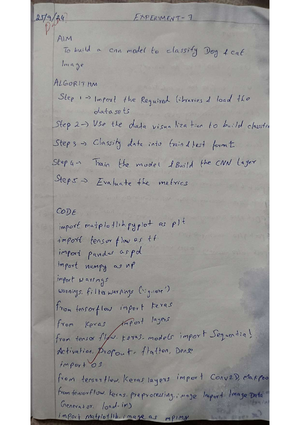 25/9/24 EXPERIMENT-7
AIM
To build a cnn model to classify Dog & cat
Image
ALGORITHM
Step 1 → Import the Required libraries & load the
datasets
Step 2 → Use the data visualization to build
Step 3 → Classify data into train & test format
Step 4 → Train the model & Build the CNN layer
Step 5 → Evaluate the metrics
CODE
import matplotlib.pyplot as plt
import tensorflow as tf
import pandas as pd
import numpy as np
import warnings
warnings.filterwarnings ('ignore')
from tensorflow import keras
from keras import layers
from tensorflow.keras.models import Sequential
Activation, Dropout, flatten, Dense
import os
from tensorflow.keras.layers import Conv2D,
from tensorflow.keras.preprocessing.image import Image Data
Generator, load-img
import matplotlib.image as mpimg